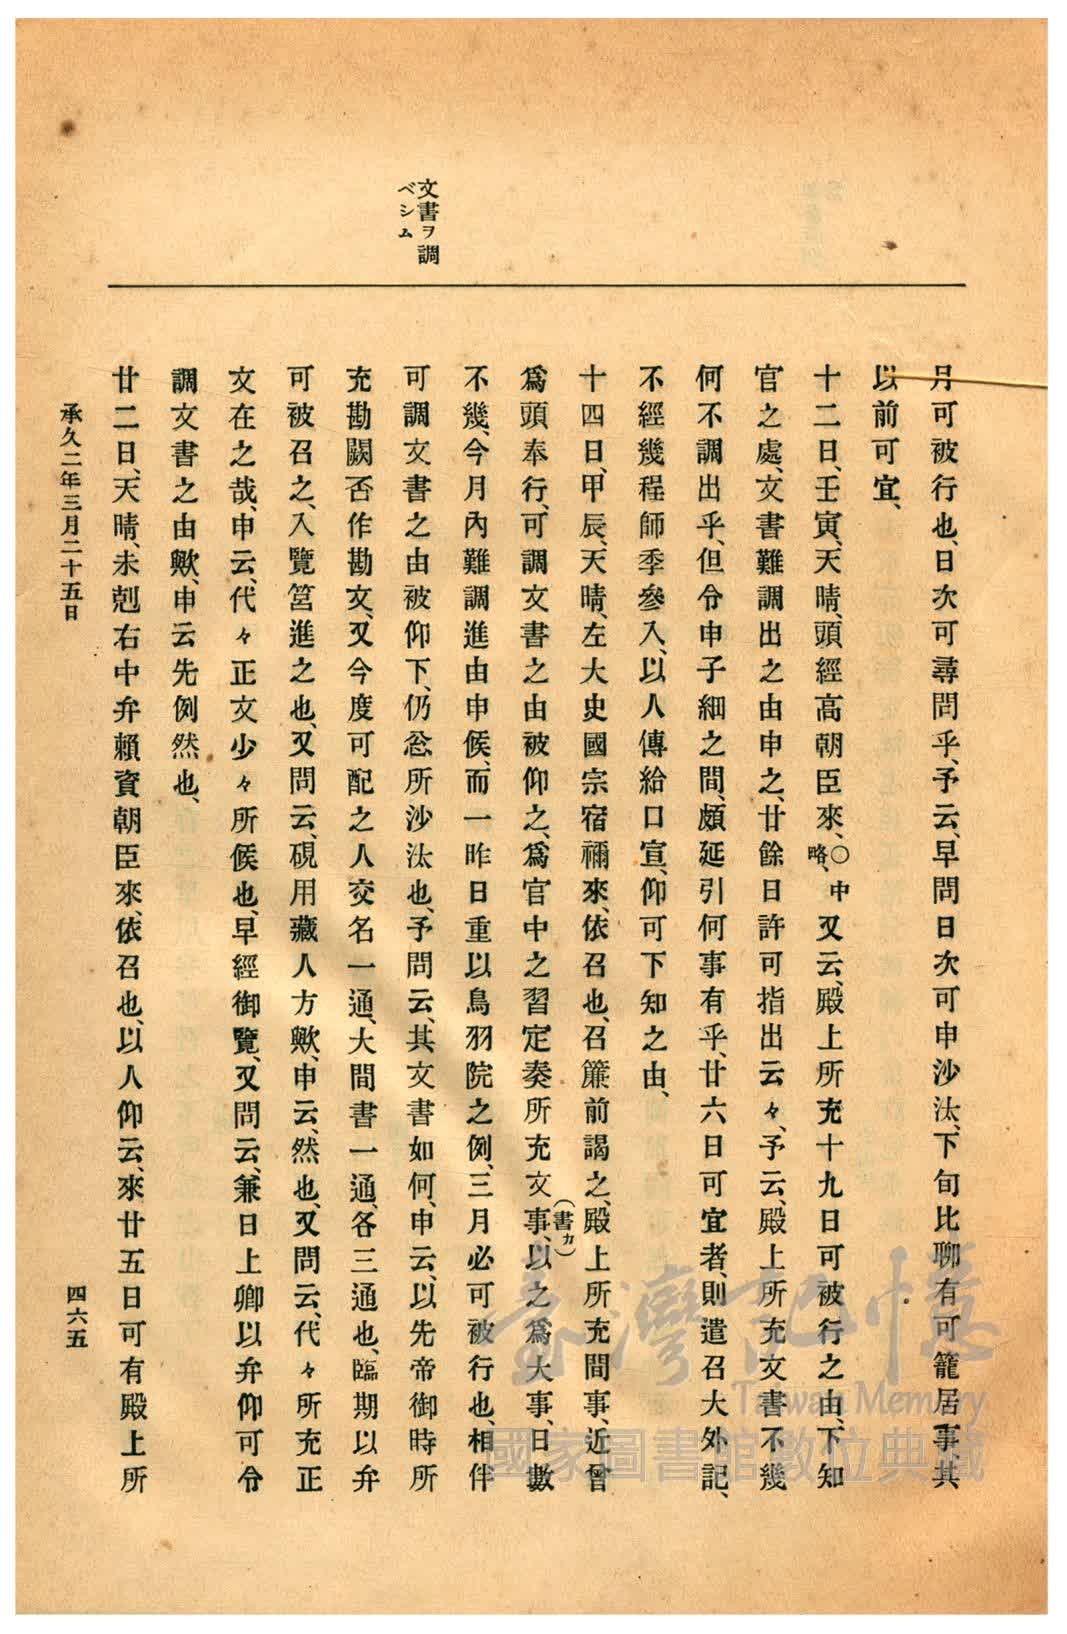 文書ヲ調
ベシム
月可被行也、日次可尋問乎、予云、早問日次可申沙汰、下旬比聊有可籠居事、其
以前可宜、
十二日、壬寅、天晴、頭經高朝臣來、〇中略、又云、殿上所充十九日可被行之由、下知
官之處、文書難調出之由申之、廿餘日許可指出云々、予云、殿上所充文書不幾
何不調出乎、但令申子細之間、頗延引何事有乎、廿六日可宜者、則遣召大外記、
不經幾程師季參入、以人傳給口宣、仰可下知之由、
十四日、甲辰、天晴、左大史國宗宿禰來、依召也、召簾前謁之、殿上所充間事、近曾
爲頭奉行、可調文書之由被仰之、爲官中之習定奏所充文事(書カ)、以之爲大事、日數
不幾、今月內難調進由申候、而一昨日重以鳥羽院之例、三月必可被行也、相伴
可調文書之由被仰下、仍忩所沙汰也、予問云、其文書如何、申云、以先帝御時所
充勘闕否作勘文、又今度可配之人交名一通、大間書一通、各三通也、臨期以弁
可被召之、入覽筥進之也、又問云、硯用藏人方歟、申云、然也、又問云、代々所充正
文在之哉、申云、代々正文少々所候也、早經御覽、又問云、兼日上卿以弁仰可令
調文書之由歟、申云先例然也、
廿二日、天晴、未剋右中弁賴資朝臣來、依召也、以人仰云、來廿五日可有殿上所
承久二年三月二十五日
四六五
臺灣記憶
Taiwan Memory
國家圖書館數位典藏